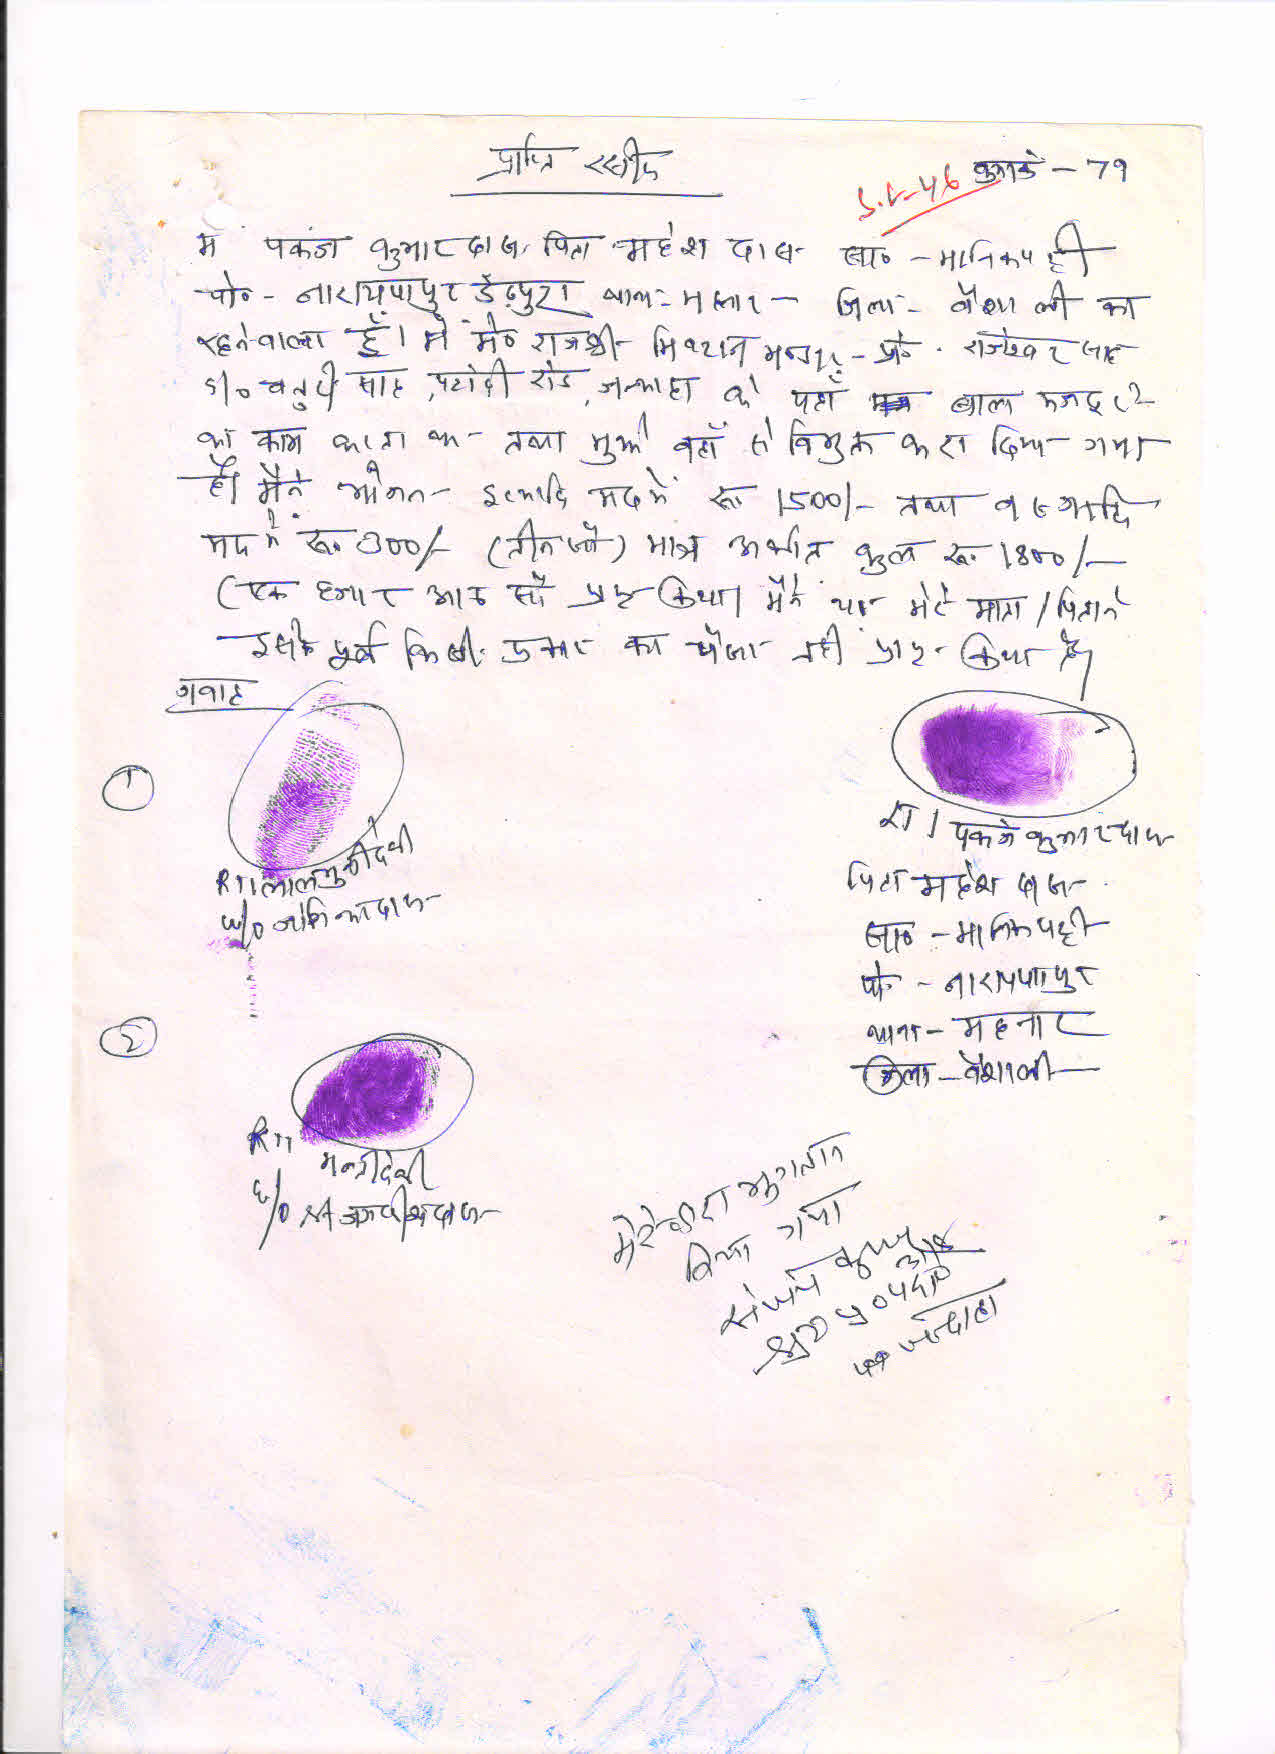 प्राप्ति रसीद
S.L-46 क्रमांक - 79
मैं पंकज कुमार दास, पिता महेश दास सा० - मानिकपट्टी
पो० - नारायणपुर डेढ़पुरा थाना - महनार - जिला - वैशाली का
रहने वाला हूँ। मैं मे० राजश्री मिष्टान भण्डार - प्रो० राजेश्वर साह
S/o चतुरी साह, पटोरी रोड, जन्दाहा के यहाँ बाल मजदूर
का काम करता था तथा मुझे वहाँ से विमुक्त करा दिया गया
है। मैंने भोजन इत्यादि मद में रू० 1500/- तथा वस्त्रादि
मद में रू. 300/- (तीन सौ) मात्र अर्थात कुल रू. 1800/-
(एक हजार आठ सौ प्राप्त किया। मैंने या मेरे माता/पिता ने
इसके पूर्व किसी प्रकार का पैसा नहीं प्राप्त किया है।
गवाह
①
RTI लालमुनी देवी
W/o दास
RTI पंकज कुमार दास
पिता महेश दास
सा० - मानिकपट्टी
पो० - नारायणपुर
थाना - महनार
जिला - वैशाली
②
RTI
देवी
W/o श्री जगदीश दास
मेरे द्वारा भुगतान
किया गया
संजय कुमार
श्रम प्र० पदा०
जन्दाहा